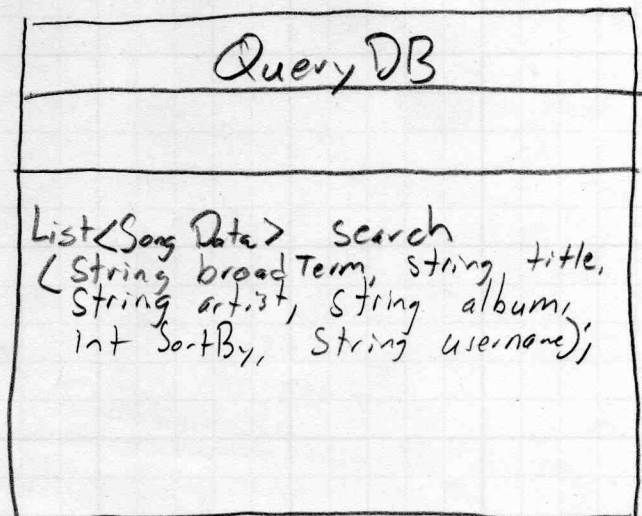 Query DB
List<Song Data> search
(String broad Term, String title,
String artist, String album,
int SortBy, String username);